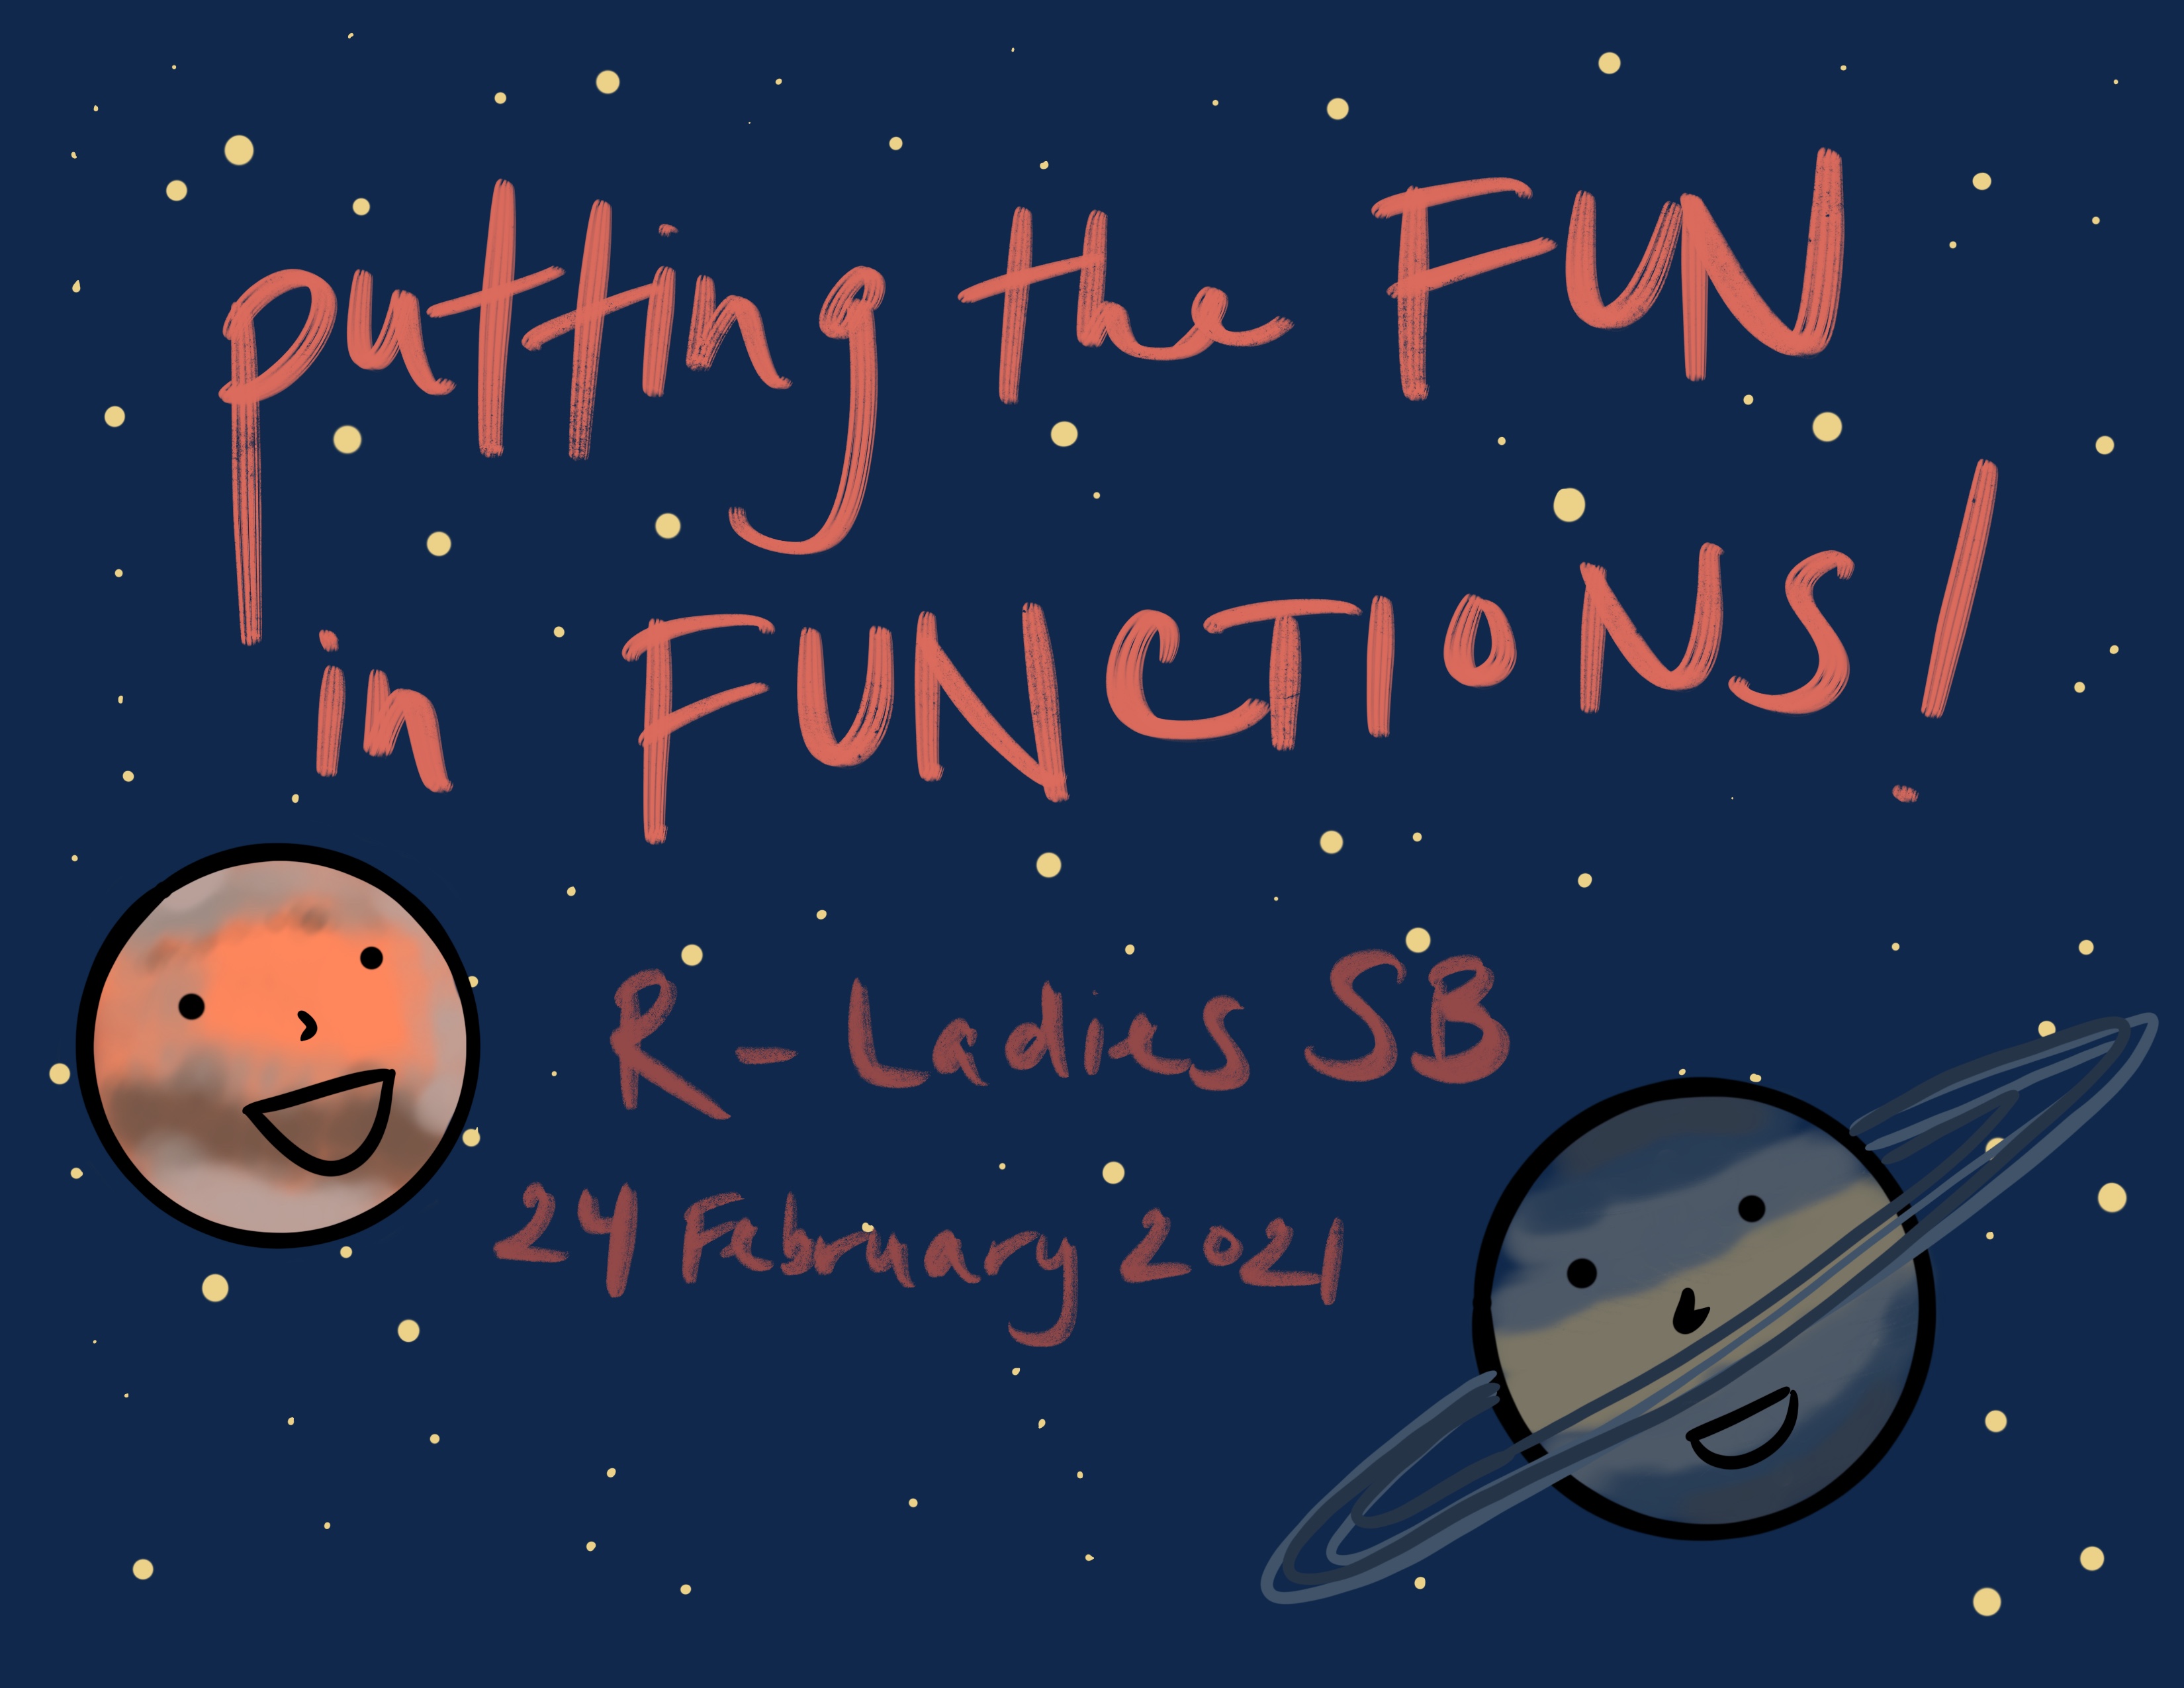 putting the FUN
in FUNCTIONS!
R-Ladies SB
24 February 2021